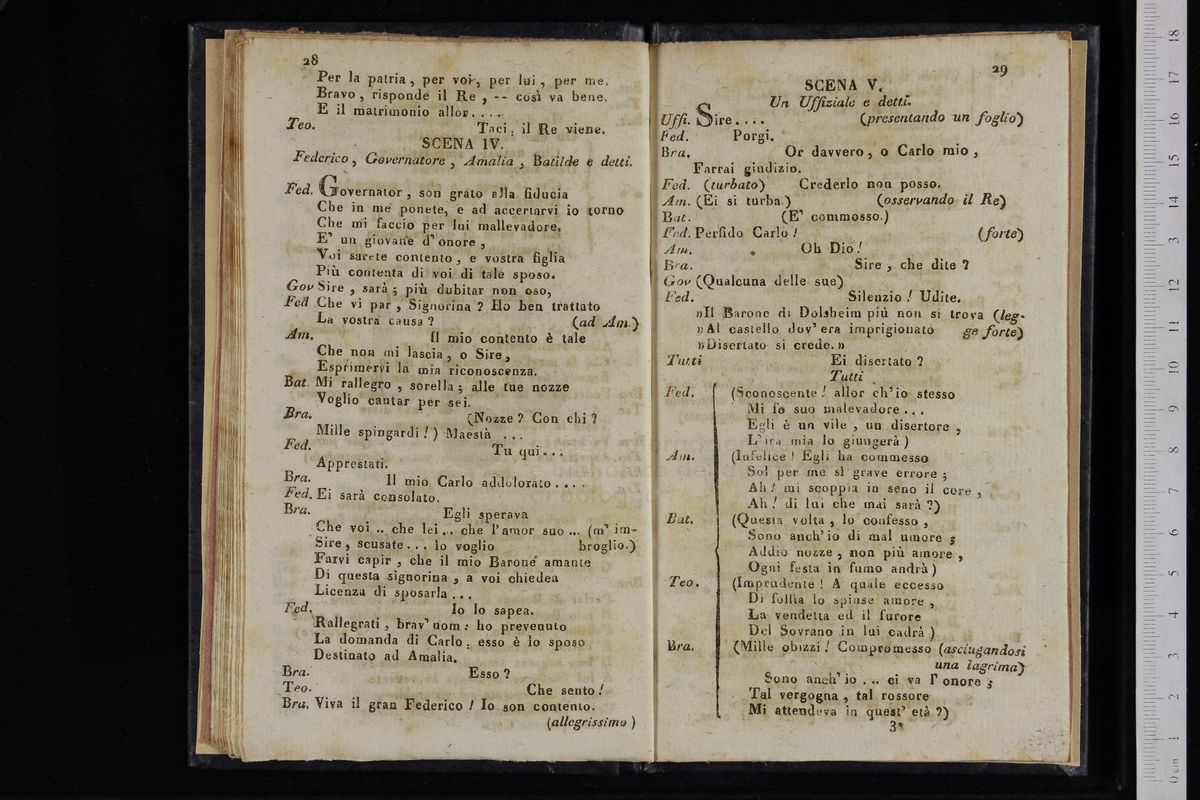 28
Per la patria, per voi, per lui, per me.
Bravo, risponde il Re, -- così va bene.
E il matrimonio allor....
Teo. Taci: il Re viene.
SCENA IV.
Federico, Governatore, Amalia, Batilde e detti.
Fed. Governator, son grato alla fiducia
Che in me ponete, e ad accertarvi io torno
Che mi faccio per lui mallevadore.
E' un giovane d'onore,
Voi sarete contento, e vostra figlia
Più contenta di voi di tale sposo.
Gov Sire, sarà; più dubitar non oso,
Fed Che vi par, Signorina? Ho ben trattato
La vostra causa? (ad Am.)
Am. Il mio contento è tale
Che non mi lascia, o Sire,
Esprimervi la mia riconoscenza.
Bat. Mi rallegro, sorella; alle tue nozze
Voglio cantar per sei.
Bra. (Nozze? Con chi?
Mille spingardi!) Maestà ...
Fed. Tu qui...
Apprestati.
Bra. Il mio Carlo addolorato....
Fed. Ei sarà consolato.
Bra. Egli sperava
Che voi .. che lei ... che l'amor suo ... (m' im-
Sire, scusate... io voglio broglio.)
Farvi capir, che il mio Barone amante
Di questa signorina, a voi chiedea
Licenza di sposarla ...
Fed. Io lo sapea.
Rallegrati, brav' uom: ho prevenuto
La domanda di Carlo: esso è lo sposo
Destinato ad Amalia.
Bra. Esso?
Teo. Che sento!
Bra. Viva il gran Federico! Io son contento.
(allegrissimo)
29
SCENA V.
Un Uffiziale e detti.
Uffi. Sire.... (presentando un foglio)
Fed. Porgi.
Bra. Or davvero, o Carlo mio,
Farrai giudizio.
Fed. (turbato) Crederlo non posso.
Am. (Ei si turba.) (osservando il Re)
Bat. (E' commosso.)
Fed. Perfido Carlo! (forte)
Am. Oh Dio!
Bra. Sire, che dite?
Gov (Qualcuna delle sue)
Fed. Silenzio! Udite.
»Il Barone di Dolsheim più non si trova (leg-
»Al castello dov' era imprigionato ge forte)
»Disertato si crede.»
Tutti Ei disertato?
Tutti
Fed. (Sconoscente! allor ch'io stesso
Mi fo suo malevadore...
Egli è un vile, un disertore,
L'ira mia lo giungerà)
Am. (Infelice! Egli ha commesso
Sol per me sì grave errore;
Ah! mi scoppia in seno il core,
Ah! di lui che mai sarà?)
Bat. (Questa volta, lo confesso,
Sono anch'io di mal umore;
Addio nozze, non più amore,
Ogni festa in fumo andrà)
Teo. (Imprudente! A quale eccesso
Di follia lo spinse amore,
La vendetta ed il furore
Del Sovrano in lui cadrà)
Bra. (Mille obizzi! Compromesso (asciugandosi
una lagrima)
Sono anch' io ... ci va l' onore;
Tal vergogna, tal rossore
Mi attendeva in quest' età?)
3*
0 cm 1 2 3 4 5 6 7 8 9 10 11 12 13 14 15 16 17 18